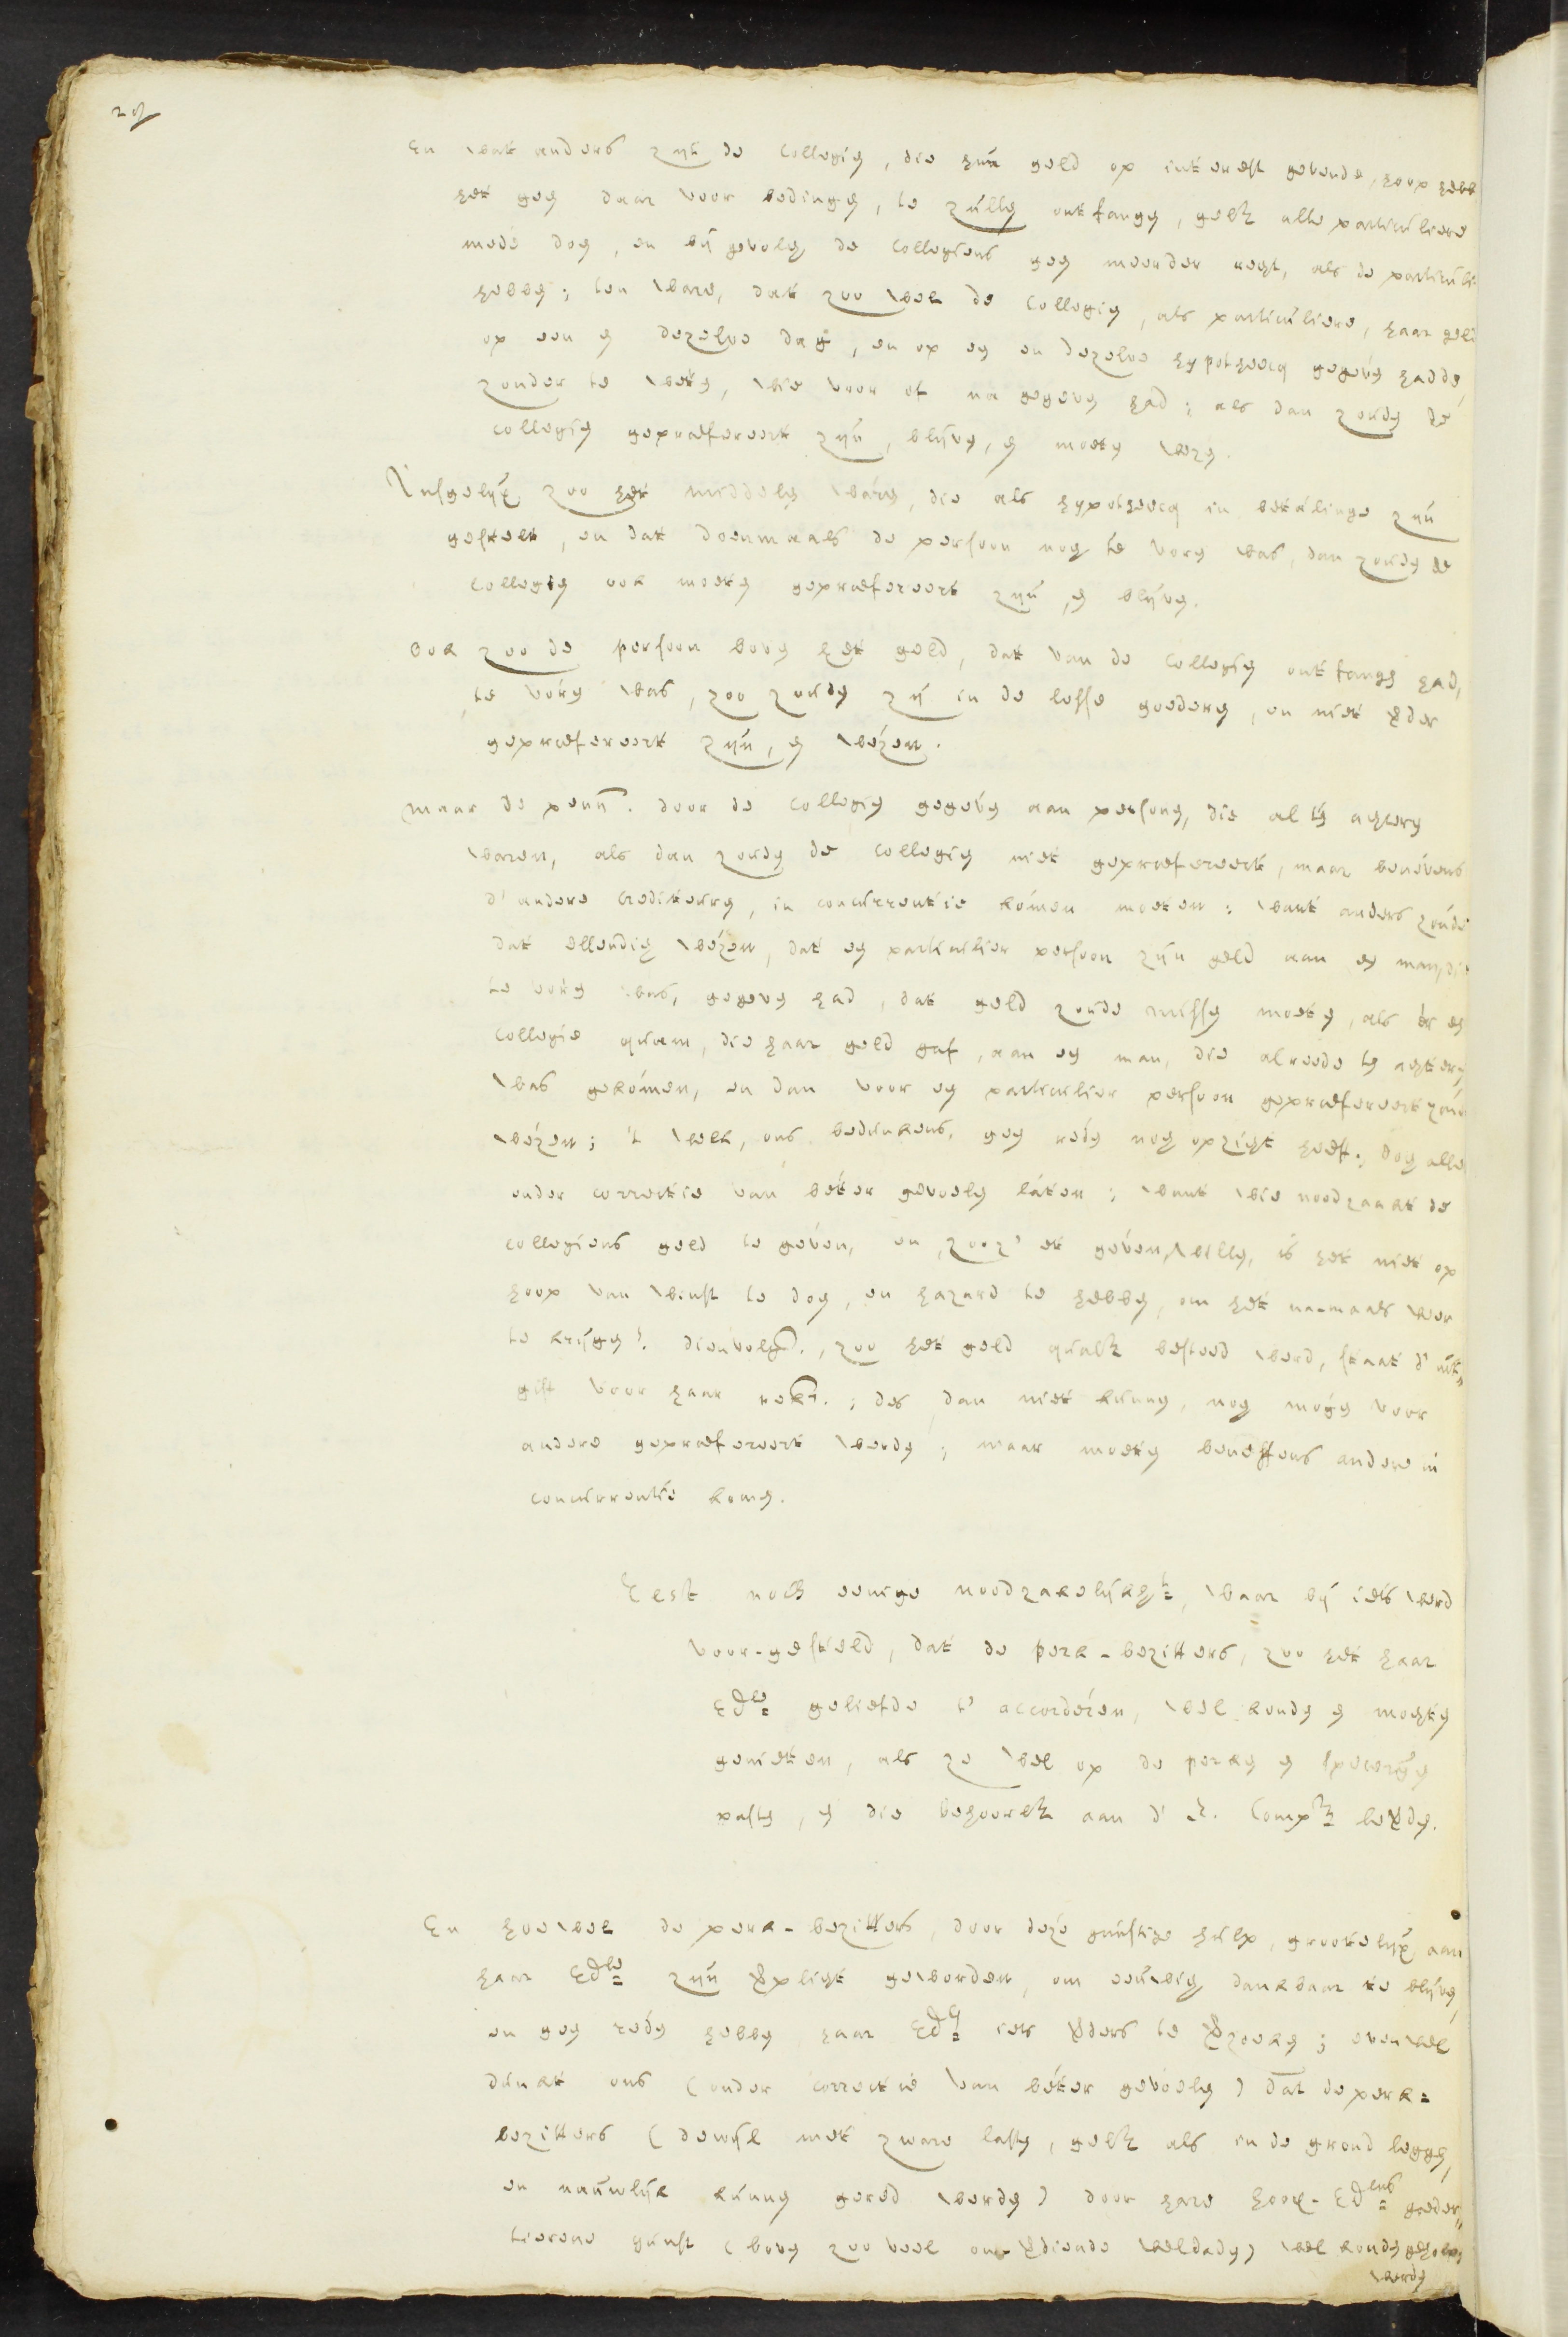 En wat anders zijn de Collegien, die hun geld op interest gevende, hoop hebb
het geen daar voor bedingen, te zullen ontfangen, gelk alle particuliere
mede doen, en bij gevolg de Collegiens geen meerder regt, als de particuli
hebben; ten ware, dat zoo wel de Collegien, als particuliere, haar geld
op een en dezelve dag, en op een en dezelve hypotheecq gegeven hadde
zonder te weten, wie voor of na gegeven had; als dan zouden de
Collegien gepræfereert zijn, blijven, en moeten wezen.
Insgelijx zoo het middelen waren, die als hypotheecq in betalinge zijn
gestelt, en dat doenmaals de persoon nog te voren was, dan zouden de
Collegien ook moeten gepræfereert zijn, en blijven.
ook zoo de persoon boven het geld, dat van de Collegien ontfangen had,
te voren was, zoo zouden zij in de losse goederen, en niet verder
gepræfereert zijn, en wezen.
maar de penn. door de Collegien gegeven aan persoonen, die al ten agteren
waren, als dan zouden de Collegien niet gepræfereert, maar benevens
d' andere Crediteuren, in concurrentie komen moeten: want anders zoude
dat ellendig wezen, dat een particulier persoon zijn geld aan een man, die
te voren was, gegeven had, dat geld zoude missen moeten, als er een
Collegie quam, die haar geld gaf, aan een man, die alreede ten agteren
was gekomen, en dan voor een particulier persoon gepræfereert zou
wezen; 't welk, ons bedunkens, geen reden nog opzigt heeft; dog alles
onder correctie van beter gevoelen laten; want wie noodzaakt de
Collegiens geld te geven, en, zoo z' et geven willen, is het niet op
hoop van winst te doen, en hazard te hebben, om het na-maals weer
te krijgen? dienvolgd., zoo het geld qualk besteed werd, staat d' uit„
gift voor haar rekg.; des dan niet kunnen, nog mogen voor
andere gepræfereert werden; maar moeten beneffens andere in
concurrentie komen.
Lest noch eenige noodzakelijkht=, waar bij iets werd
voor-gesteld, dat de perk-bezitters, zoo het haar
Edle= geliefde t' accorderen, wel konden en mogten
genieten, als ze wel op de perken en specerijen
pasten, en die behoorlk aan d' E. Compe= leverden.
En hoewel de perk-bezitters, door deze gunstige hulp, grootelijx aan
haar Edle= zijn verpligt geworden, om eeuwig dankbaar te blijven,
en geen reden hebben haar Edn= iets verders te verzoeken; evenwel
dunkt ons (onder correctie van beter gevoelen) dat de perk=
bezitters (dewijl met zware lasten, gelk als in de grond leggen,
en nauwlijk kunnen gered werden) door hare hoog-Edlens= goeder„
tierene gunst (boven zoo veel on-verdiende weldaden) wel konden geholpen
werden